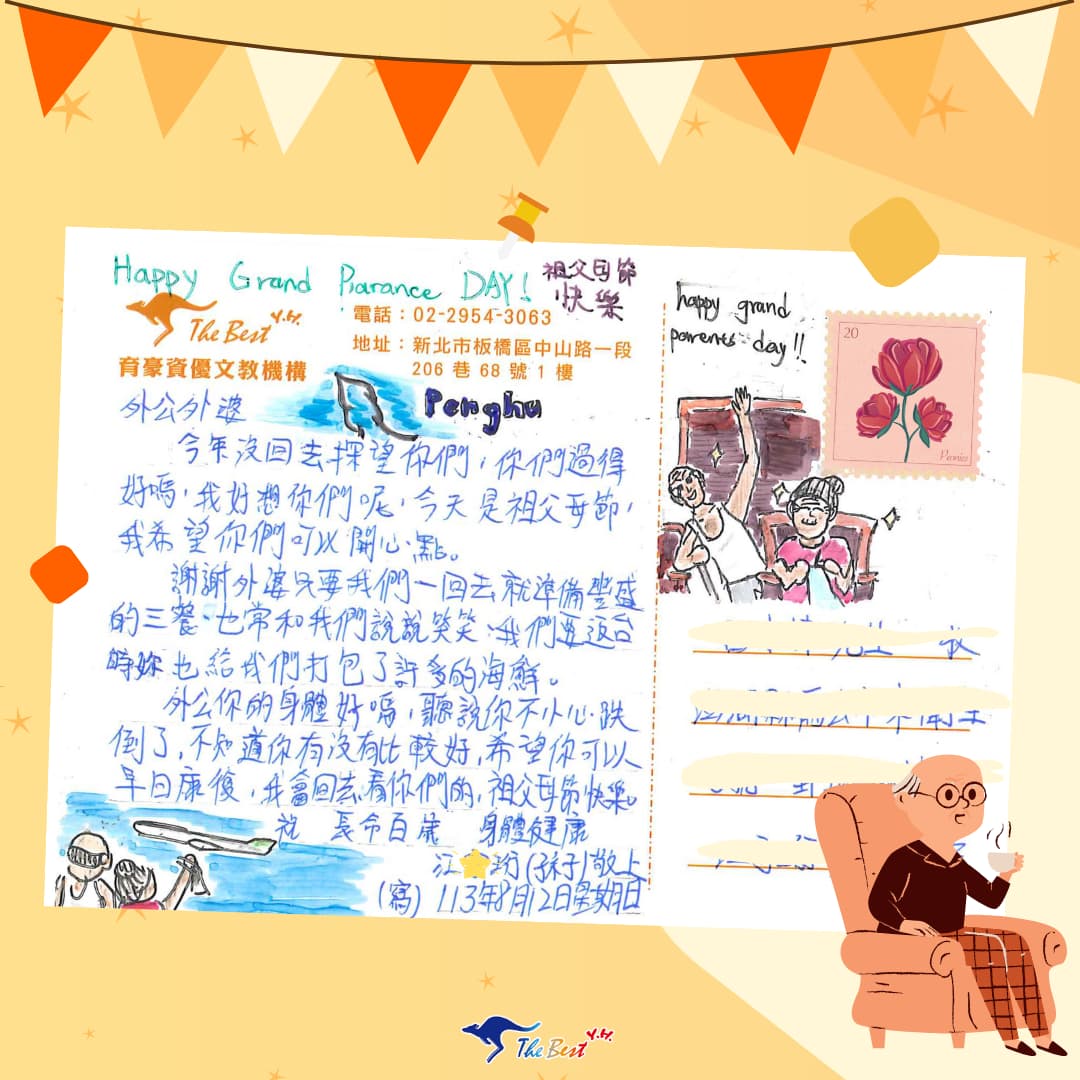 Happy Grand Parance DAY!
祖父母節
快樂
The Best Y.H.
育豪資優文教機構
電話：02-2954-3063
地址：新北市板橋區中山路一段
206 巷 68 號 1 樓
Penghu
外公外婆
今年沒回去探望你們，你們過得
好嗎，我好想你們呢，今天是祖父母節，
我希望你們可以開心點。
謝謝外婆只要我們一回去就準備豐盛
的三餐，也常和我們說說笑笑，我們要返台
時妳也給我們打包了許多的海鮮。
外公你的身體好嗎，聽說你不小心跌
倒了，不知道你有沒有比較好，希望你可以
早日康復，我會回去看你們的，祖父母節快樂。
祝 長命百歲 身體健康
江 (孫子)敬上
(寫) 113年8月12日星期日
happy grand
parents day!!
20
Peonies
The Best Y.H.